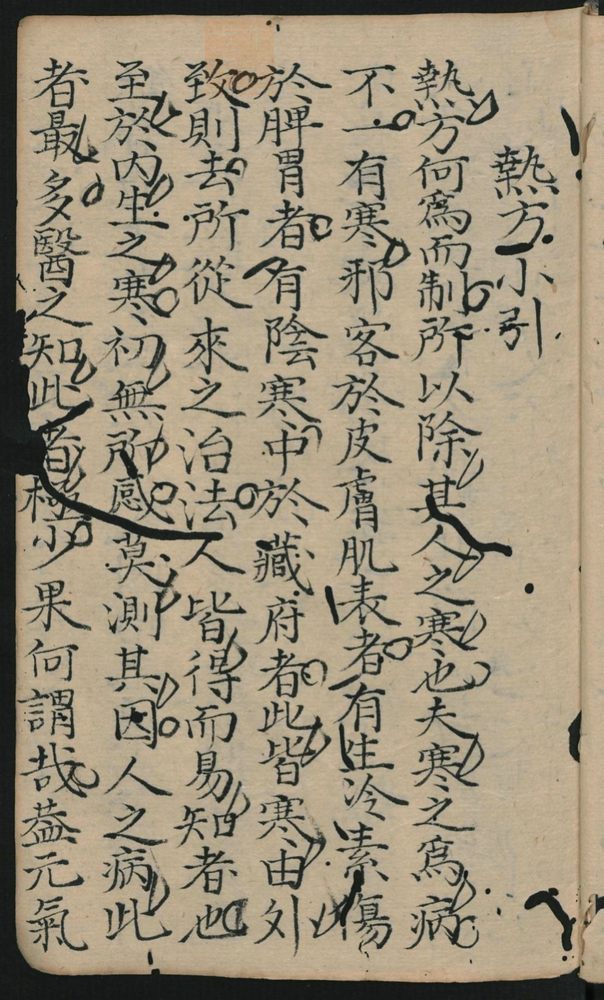 熱方小引
熱方何爲而制所以除其人之寒也夫寒之爲病
不一有寒邪客於皮膚肌表者有生冷素傷
於脾胃者有陰寒中於藏府者此皆寒由外
致則去所從來之治法人皆得而易知者也
至於内生之寒初無所感莫測其因人之病此
者最多醫之知此者極少果何謂哉葢元氣